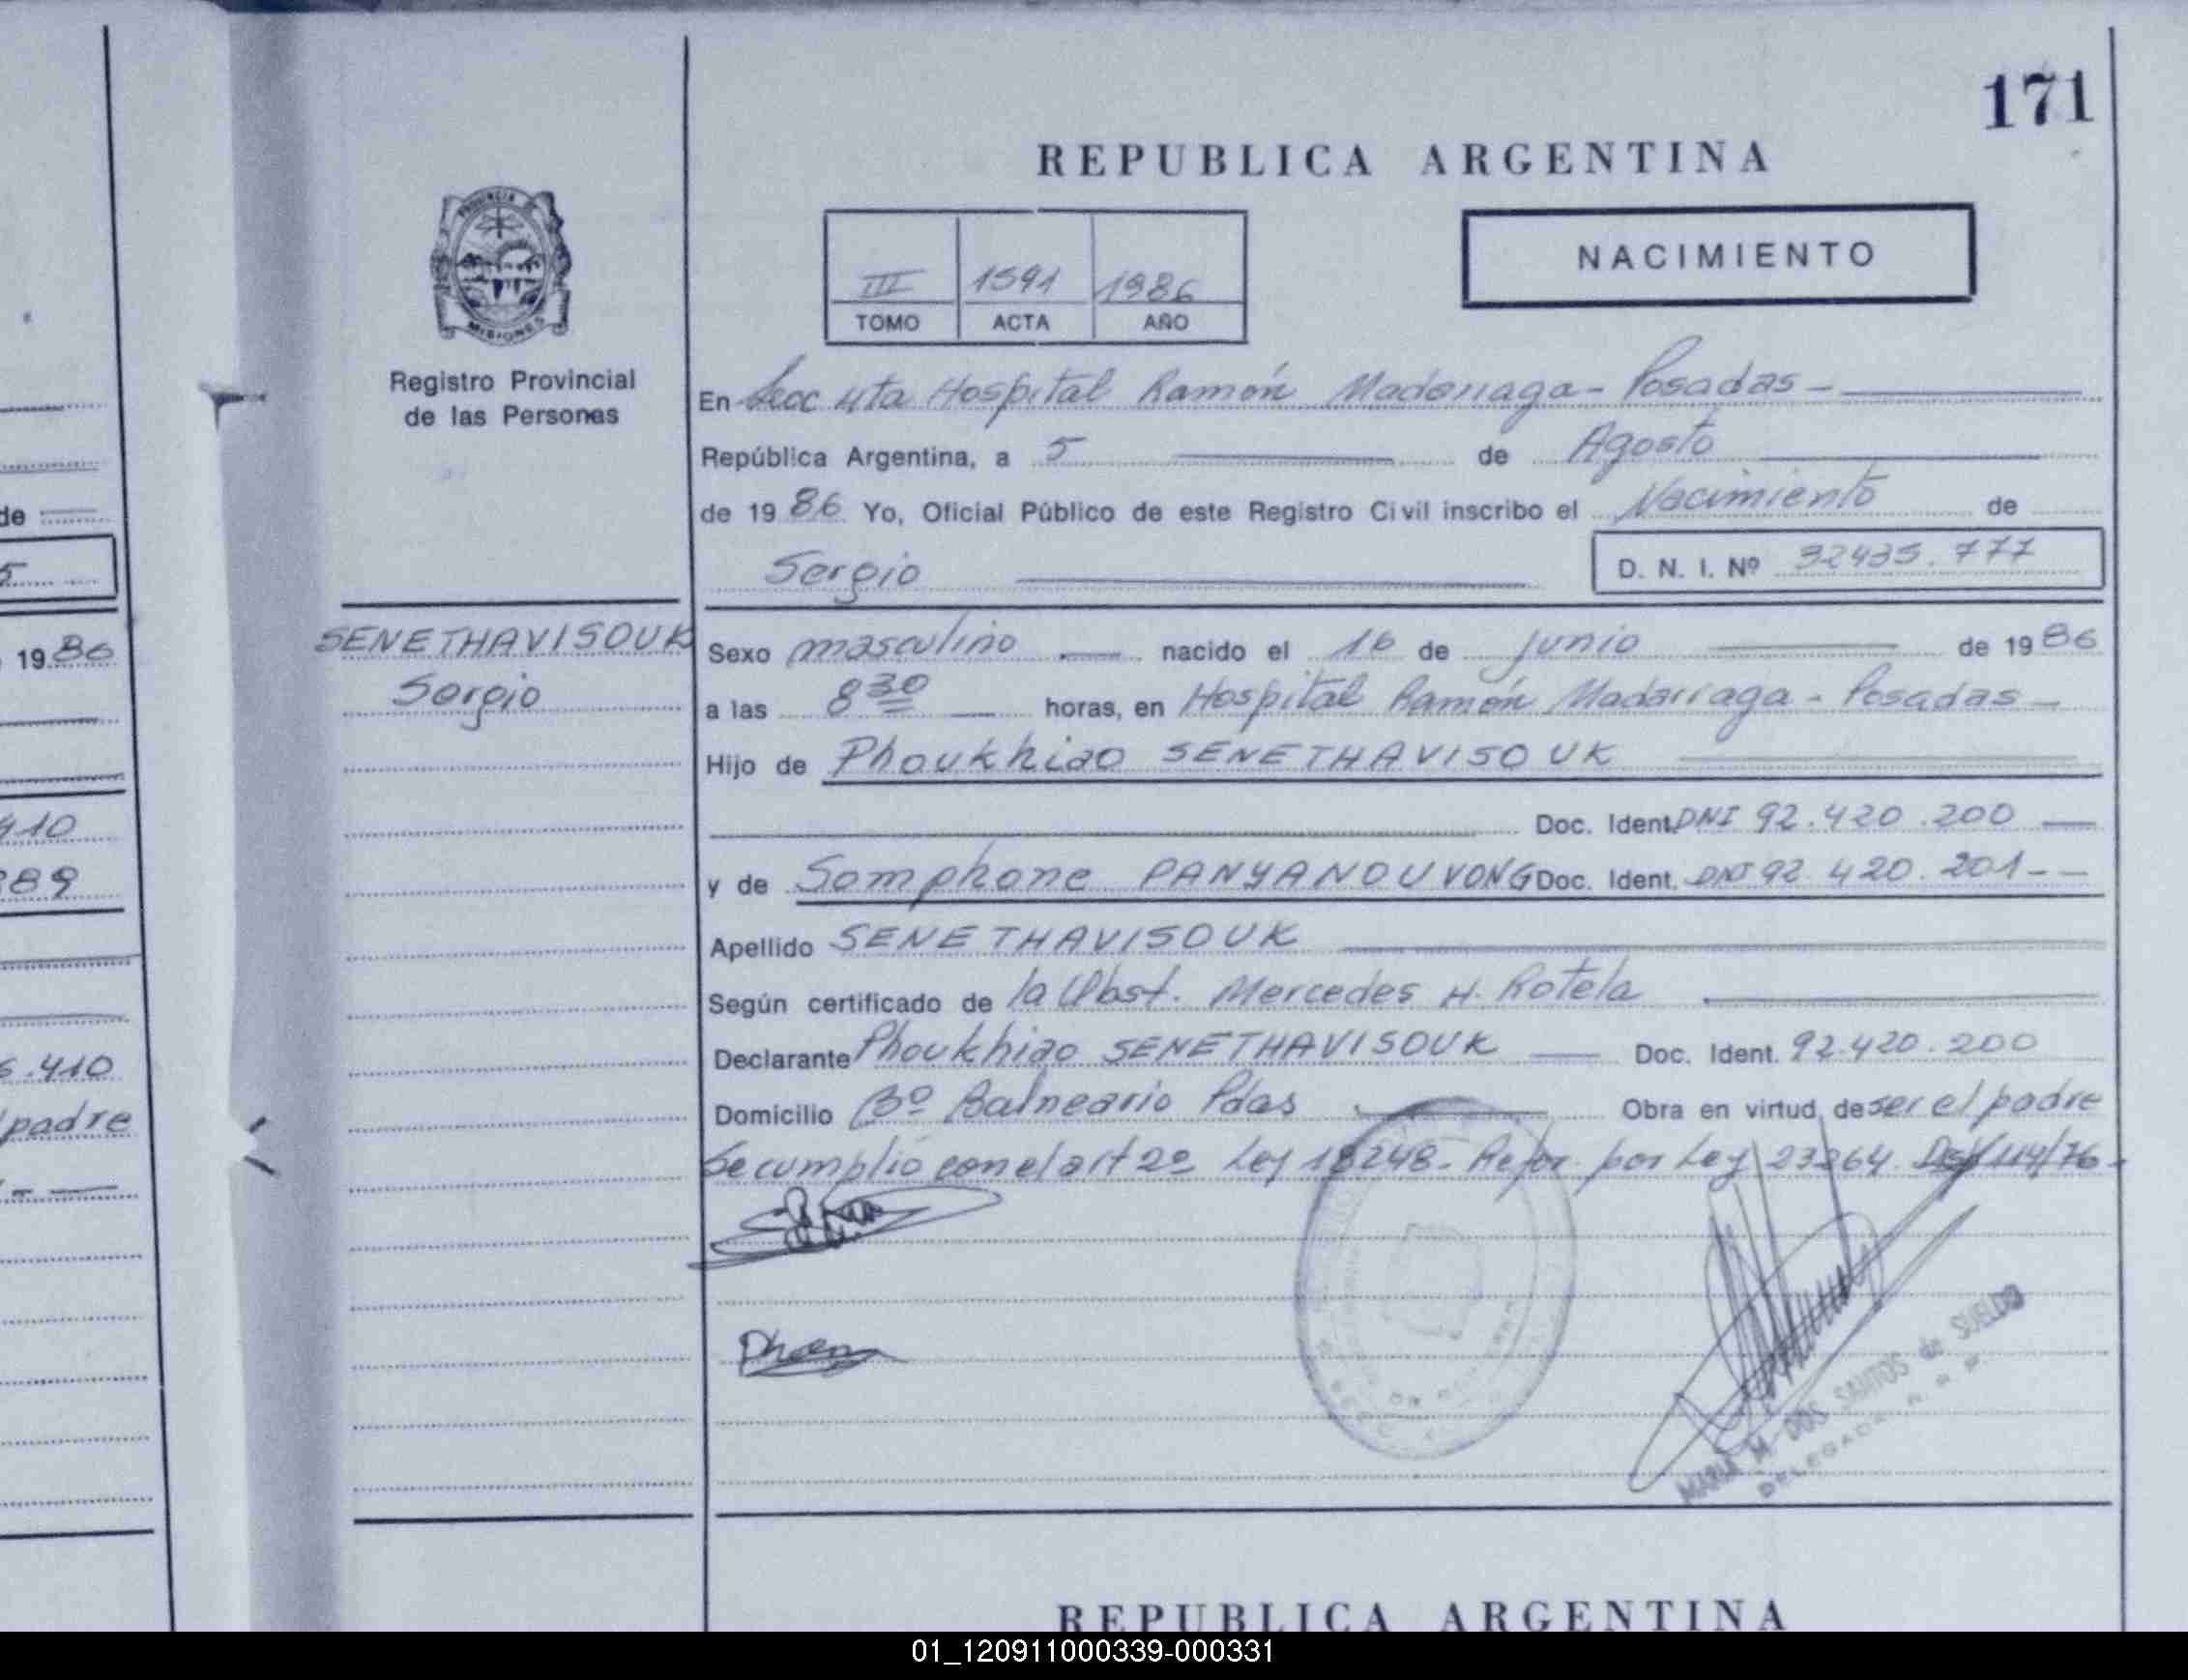 171
REPUBLICA ARGENTINA
NACIMIENTO
III 1591 1986
TOMO ACTA AÑO
PROVINCIA
MISIONES
Registro Provincial
de las Personas
En Secc 4ta Hospital Ramón Madariaga - Posadas -
República Argentina, a 5 de Agosto
de 1986 Yo, Oficial Público de este Registro Civil inscribo el Nacimiento de
Sergio D. N. I. Nº 32435.777
SENETHAVISOUK
Sergio
Sexo masculino nacido el 16 de junio de 1986
a las 8 30 horas, en Hospital Ramón Madarriaga - Posadas -
Hijo de Phoukhiao SENETHAVISOUK
Doc. Ident. DNI 92.420.200
y de Somphone PANYANOUVONG Doc. Ident. DNI 92.420.201 - -
Apellido SENETHAVISOUK
Según certificado de la Obst. Mercedes H. Rotela
Declarante Phoukhiao SENETHAVISOUK Doc. Ident. 92.420.200
Domicilio Bº Balneario Pdas Obra en virtud de ser el padre
Se cumplió con el art 2º Ley 18248 - Refor. por Ley 23264. Disp 114/76 -
MARIA M. DOS SANTOS de SUELDO
DELEGADA
de
5
1986
410
389
6.410
padre
REPUBLICA ARGENTINA
01_120911000339-000331